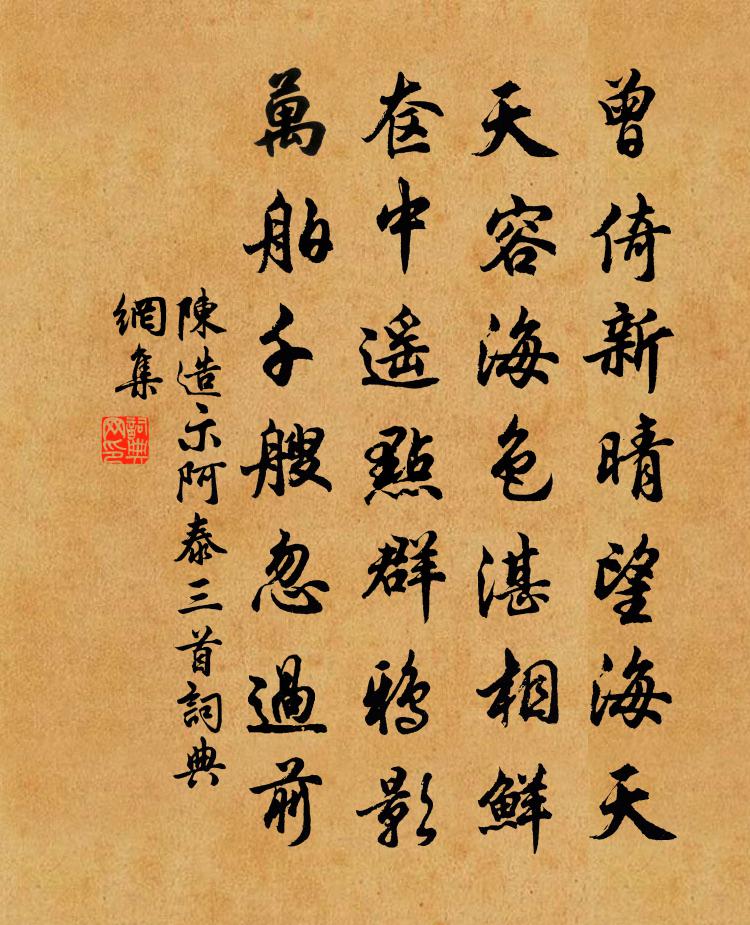 曾倚新晴望海天
天容海色湛相鮮
奁中遥點群鴉影
萬舶千艘忽過前
陳造示阿泰三首詞典
網集
詞典
网印